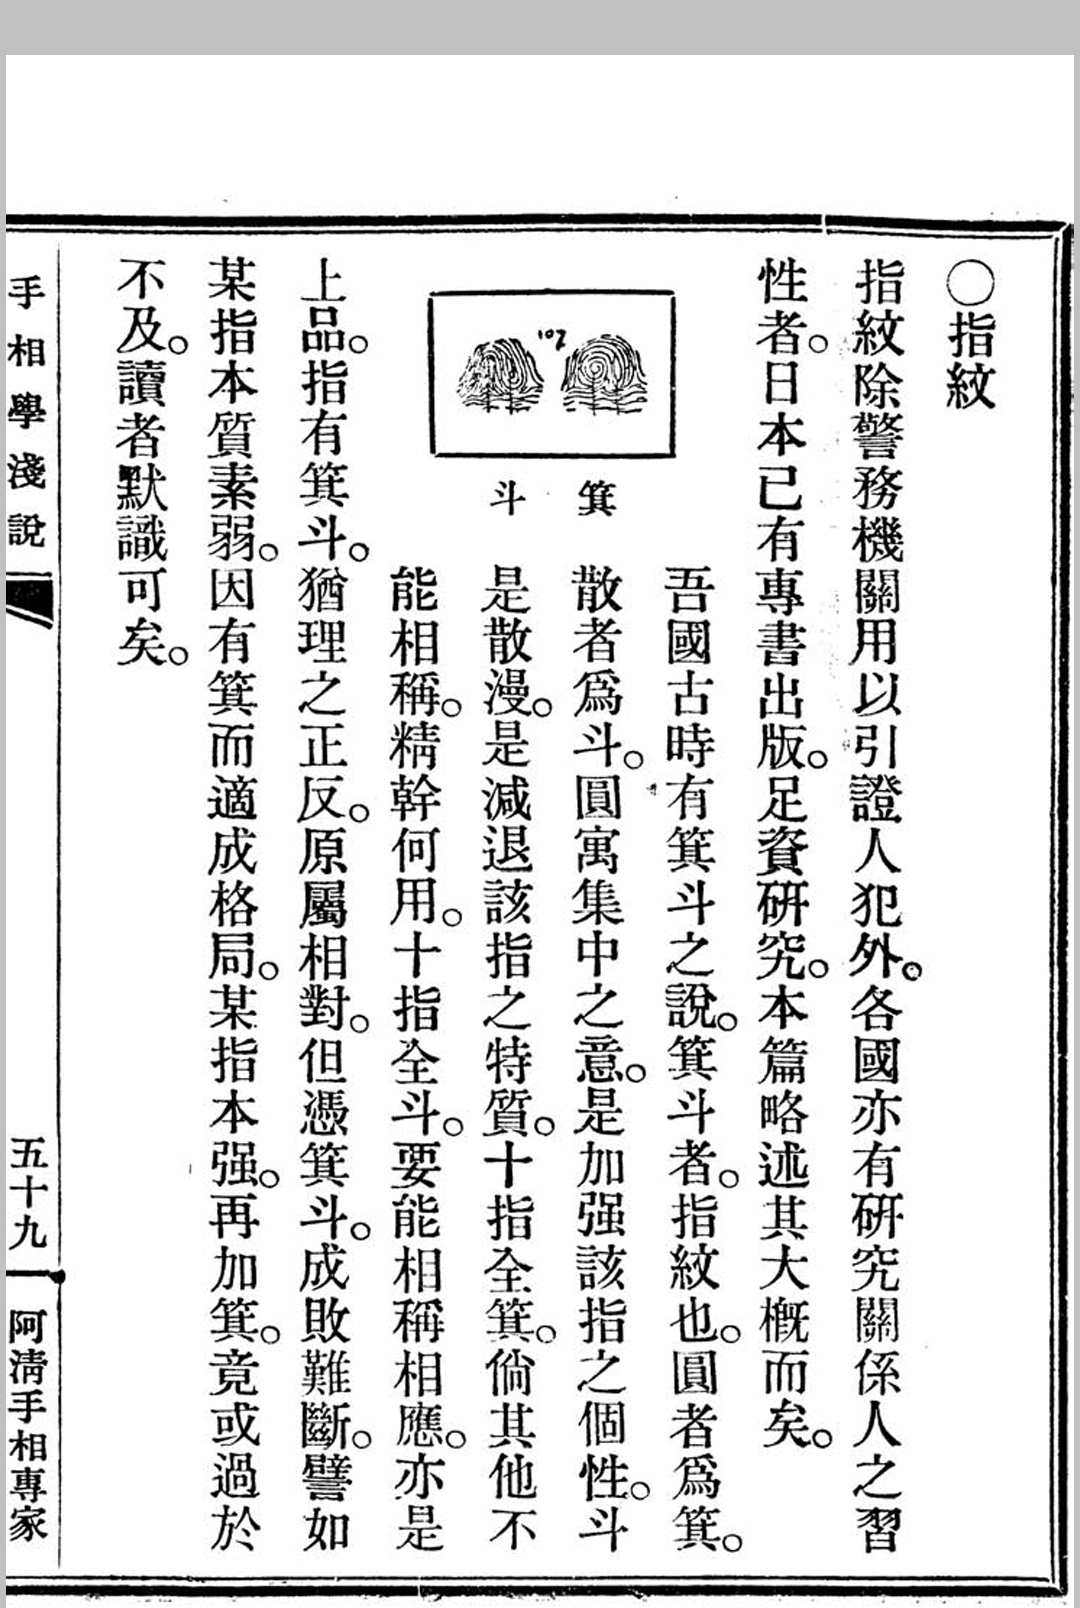 ○指紋
指紋除警務機關用以引證人犯外。各國亦有研究關係人之習
性者。日本已有專書出版。足資研究。本篇略述其大概而矣。
吾國古時有箕斗之說。箕斗者。指紋也。圓者爲箕。
散者爲斗。圓寓集中之意。是加强該指之個性。斗
是散漫。是減退該指之特質。十指全箕。倘其他不
能相稱。精幹何用。十指全斗。要能相稱相應。亦是
107
箕
斗
上品。指有箕斗。猶理之正反。原屬相對。但憑箕斗。成敗難斷。譬如
某指本質素弱。因有箕而適成格局。某指本强。再加箕。竟或過於
不及。讀者默識可矣。
手相學淺說
五十九
阿清手相專家